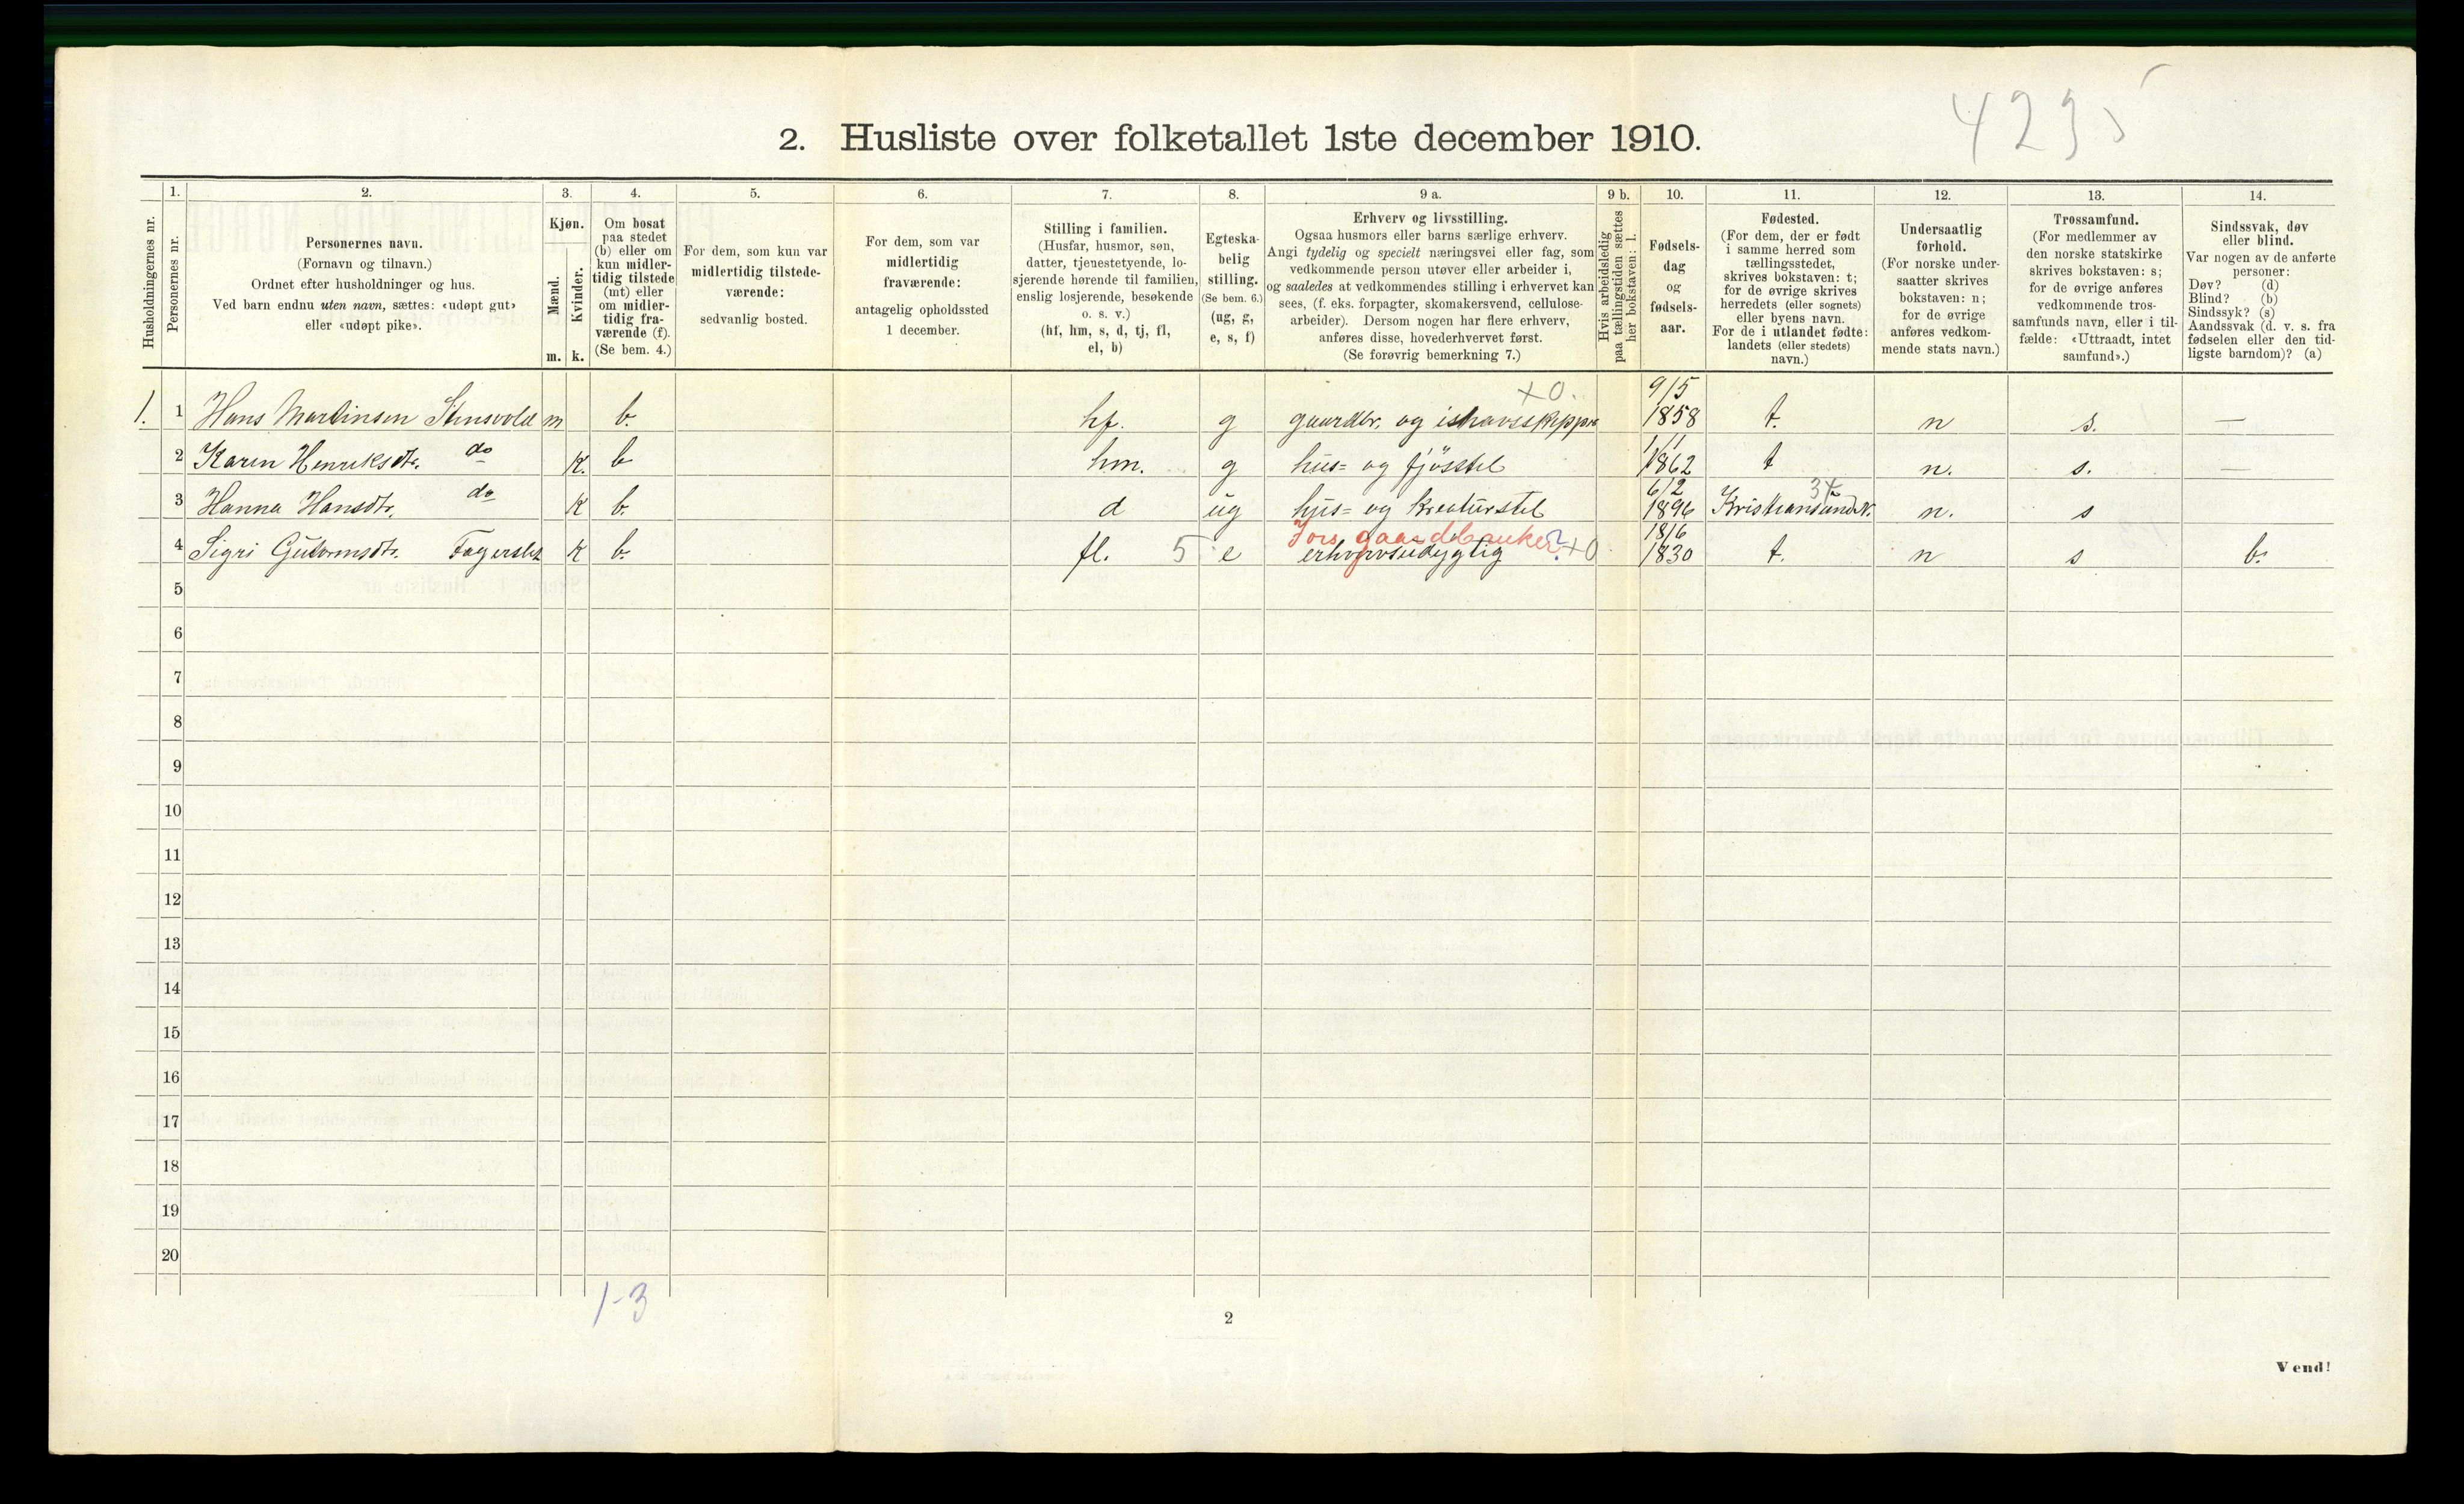 4235
2. Husliste over folketallet 1ste december 1910.
Husholdningernes nr.
1.
Personernes nr.
2.
Personernes navn.
(Fornavn og tilnavn.)
Ordnet efter husholdninger og hus.
Ved barn endnu uten navn, sættes: «udøpt gut»
eller «udøpt pike».
3.
Kjøn.
Mænd.
Kvinder.
m. k.
4.
Om bosat
paa stedet
(b) eller om
kun midler-
tidig tilstede
(mt) eller
om midler-
tidig fra-
værende (f).
(Se bem. 4.)
5.
For dem, som kun var
midlertidig tilstede-
værende:
sedvanlig bosted.
6.
For dem, som var
midlertidig
fraværende:
antagelig opholdssted
1 december.
7.
Stilling i familien.
(Husfar, husmor, søn,
datter, tjenestetyende, lo-
sjerende hørende til familien,
enslig losjerende, besøkende
o. s. v.)
(hf, hm, s, d, tj, fl,
el, b)
8.
Egteska-
belig
stilling.
(Se bem. 6.)
(ug, g,
e, s, f)
9 a.
Erhverv og livsstilling.
Ogsaa husmors eller barns særlige erhverv.
Angi tydelig og specielt næringsvei eller fag, som
vedkommende person utøver eller arbeider i,
og saaledes at vedkommendes stilling i erhvervet kan
sees, (f. eks. forpagter, skomakersvend, cellulose-
arbeider). Dersom nogen har flere erhverv,
anføres disse, hovederhvervet først.
(Se forøvrig bemerkning 7.)
9 b.
Hvis arbeidsledig
paa tællingstiden sættes
her bokstaven: l.
10.
Fødsels-
dag
og
fødsels-
aar.
11.
Fødested.
(For dem, der er født
i samme herred som
tællingsstedet,
skrives bokstaven: t;
for de øvrige skrives
herredets (eller sognets)
eller byens navn.
For de i utlandet fødte:
landets (eller stedets)
navn.)
12.
Undersaatlig
forhold.
(For norske under-
saatter skrives
bokstaven: n;
for de øvrige
anføres vedkom-
mende stats navn.)
13.
Trossamfund.
(For medlemmer av
den norske statskirke
skrives bokstaven: s;
for de øvrige anføres
vedkommende tros-
samfunds navn, eller i til-
fælde: «Uttraadt, intet
samfund».)
14.
Sindssvak, døv
eller blind.
Var nogen av de anførte
personer:
Døv? (d)
Blind? (b)
Sindssyk? (s)
Aandssvak (d. v. s. fra
fødselen eller den tid-
ligste barndom)? (a)
+0. 9/5
1. 1 Hans Martinsen Stensvold m b. hf. g gaardbr. og ishavsskipper 1858 t. n s. —
1/1
2 Karen Henriksdtr. do K. b hm. g hus= og fjösstel 1862 t n. s. —
6/2 34
3 Hanna Hansdtr. do K b. d ug hus= og kreaturstel 1896 Kristiansund N. n. s
Fors. gaardbruker ? 18/6
4 Sigri Guttormsdtr. Fagerslet K b. fl. 5 e erhvervsudygtig +0 1830 t. n s b.
5
6
7
8
9
10
11
12
13
14
15
16
17
18
19
20
1-3
2
Vend!